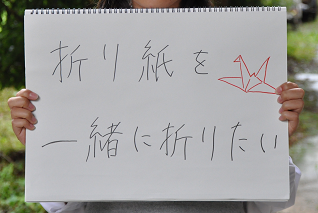 折り紙を
一緒に折りたい